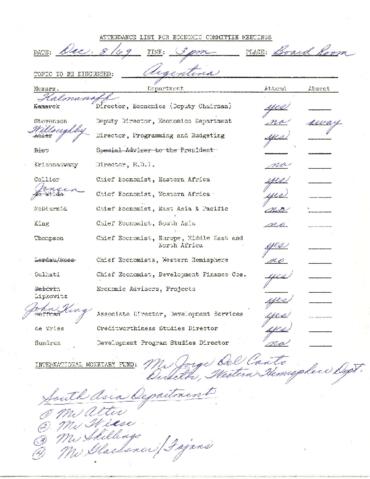 ATTENDANCE LIST FOR ECONOMIC COMMITTEE MEETINGS
DATE: Dec. 8/69 TIME: 3 pm PLACE: Board Room
TOPIC TO BE DISCUSSED: Argentina
Messrs. Department Attend Absent
Kalmanoff
Kamarck Director, Economics (Deputy Chairman) yes
Stevenson Deputy Director, Economics Department no away
Willoughby
Adler Director, Programming and Budgeting yes
Rist Special Adviser to the President
Krishnaswamy Director, E.D.I. no
Collier Chief Economist, Eastern Africa yes
Jansen
Chief Economist, Western Africa yes
McDiarmid Chief Economist, East Asia & Pacific no
King Chief Economist, South Asia no
Thompson Chief Economist, Europe, Middle East and
North Africa yes
Chief Economists, Western Hemisphere no
Gulhati Chief Economist, Development Finance Cos. yes
Baldwin
Lipkowitz Economic Advisers, Projects yes
John King
Associate Director, Development Services yes
de Vries Creditworthiness Studies Director yes
Sundrum Development Program Studies Director no
INTERNATIONAL MONETARY FUND: Mr Jorge Del Canto
Director, Western Hemisphere Dept.
South Asia Department
1 Mr Atter
2 Mr Wiese
3 Mr Skillings
4 Mr Glaessner / Fajans